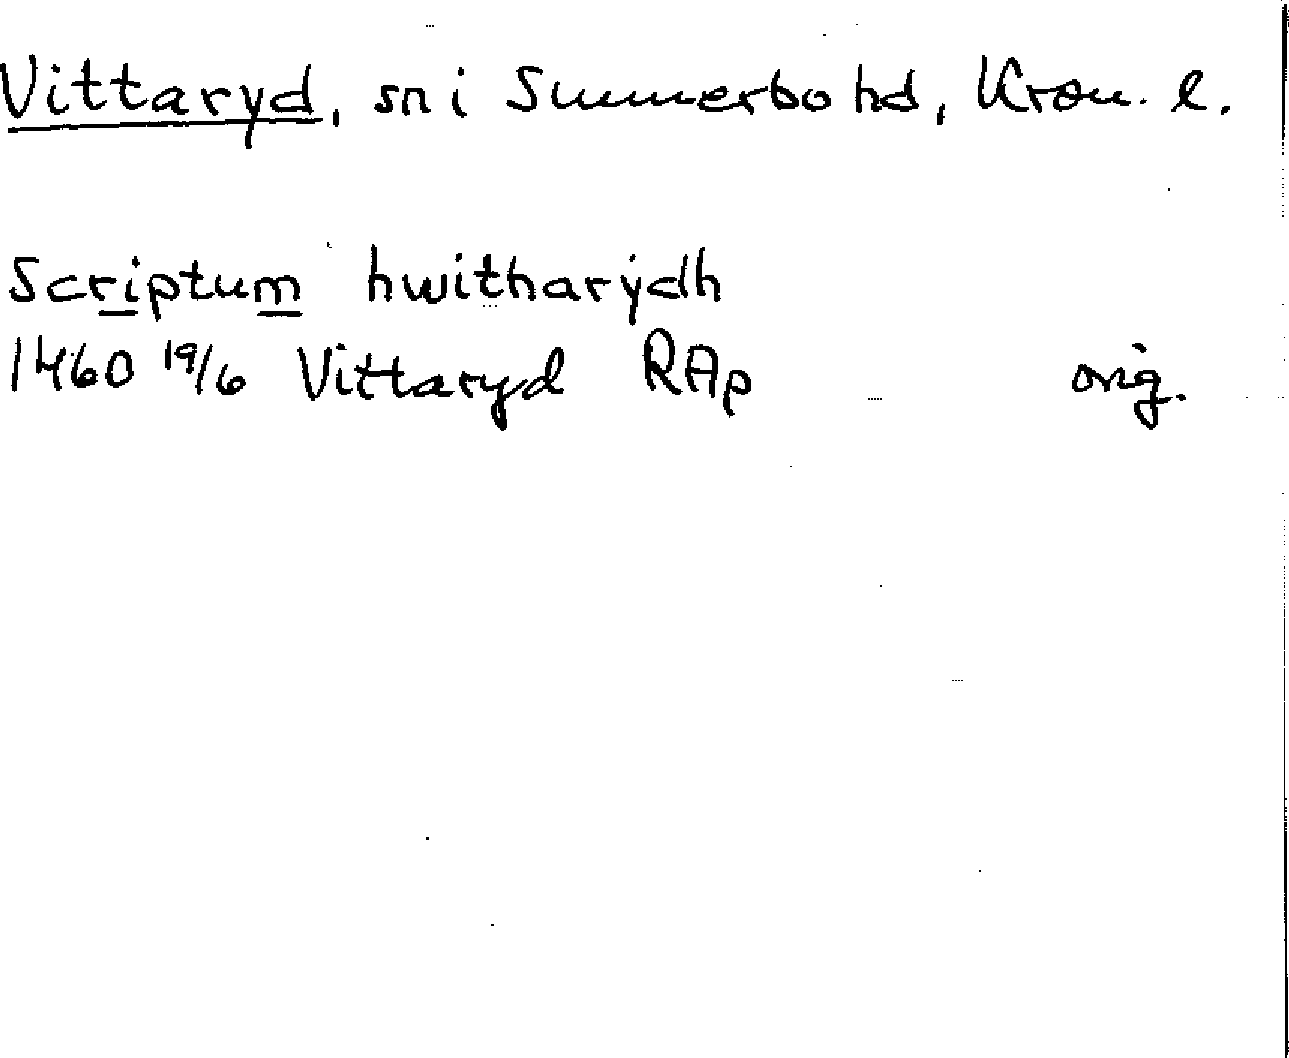 Vittaryd, sn i Sunnerbo hd, Kron. l.
Scriptum hwitharÿdh
1460 19/6 Vittaryd RAp orig.